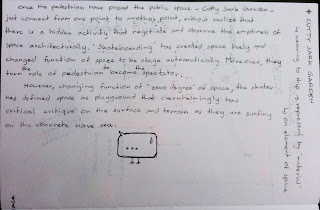 once the pedestrian have passed the public space - Cutty Sark Garden -
just connect from one point to another point, without realize that
there is a hidden activity that negotiate and observe the emptiness of
space architecturally. 'Skateboarding' has created space lively and
changed function of space to be stage automatically. Moreover, they
turn the role of pedestrian to become spectator.
However, changing function of 'zero degree' of space, the skater
has defined space as playground that overwhelmingly has
critical critique on the surface and terrain as they are surfing
on the concrete wave sea.
...
+ CUTTY SARK GARDEN
is meaning to thing represent by 'material'
is an element of space